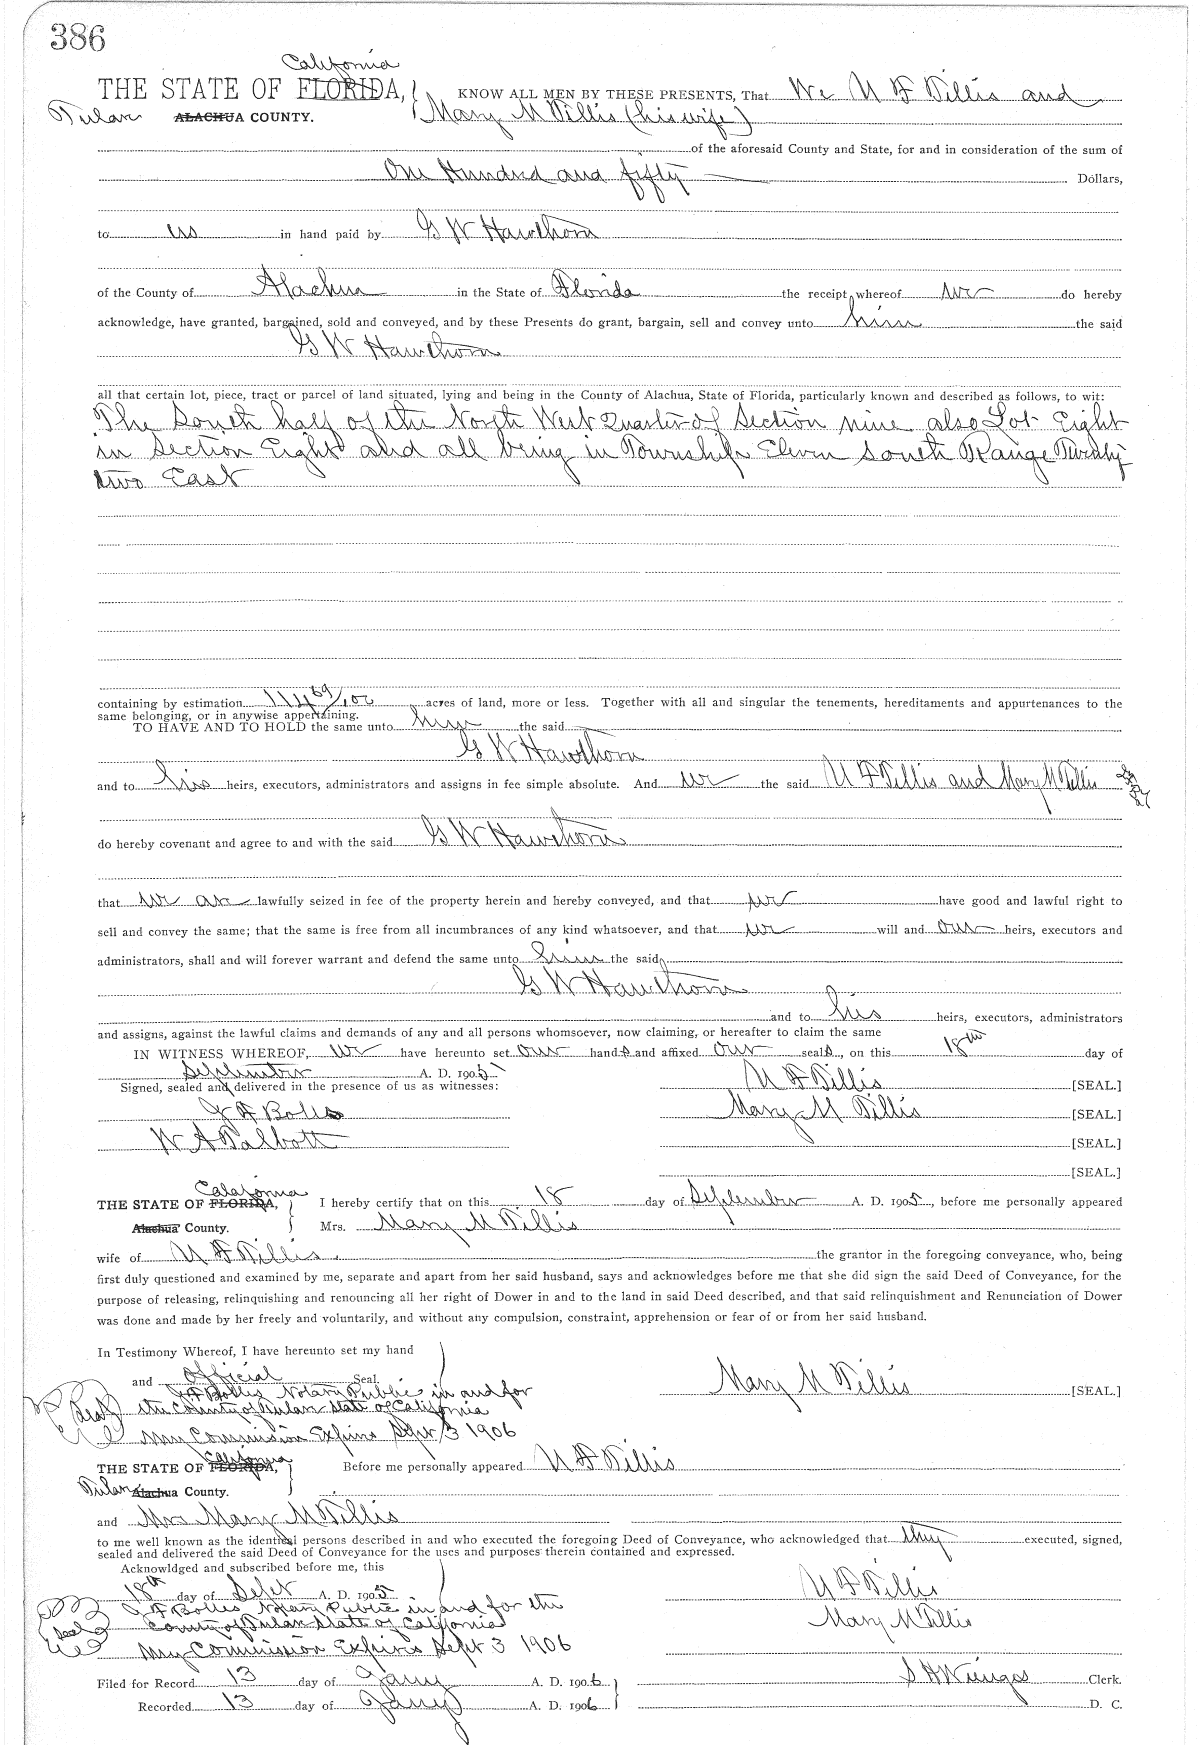 386
California
THE STATE OF FLORIDA, KNOW ALL MEN BY THESE PRESENTS, That We U F Tillis and
Tular ALACHUA COUNTY. Mary M Tillis (his wife)
of the aforesaid County and State, for and in consideration of the sum of
One Hundred and fifty Dollars,
to us in hand paid by G W Hawthorn
of the County of Alachua in the State of Florida the receipt whereof we do hereby
acknowledge, have granted, bargained, sold and conveyed, and by these Presents do grant, bargain, sell and convey unto him the said
G W Hawthorn
all that certain lot, piece, tract or parcel of land situated, lying and being in the County of Alachua, State of Florida, particularly known and described as follows, to wit:
The South half of the North West Quarter of Section nine also Lot Eight
in Section Eight and all being in Township Eleven south Range Twenty
two East
containing by estimation 114 69/100 acres of land, more or less. Together with all and singular the tenements, hereditaments and appurtenances to the
same belonging, or in anywise appertaining.
TO HAVE AND TO HOLD the same unto him the said
G W Hawthorn
and to his heirs, executors, administrators and assigns in fee simple absolute. And we the said U F Tillis and Mary M Tillis
do hereby covenant and agree to and with the said G W Hawthorn
that we are lawfully seized in fee of the property herein and hereby conveyed, and that we have good and lawful right to
sell and convey the same; that the same is free from all incumbrances of any kind whatsoever, and that we will and our heirs, executors and
administrators, shall and will forever warrant and defend the same unto him the said
G W Hawthorn
and to his heirs, executors, administrators
and assigns, against the lawful claims and demands of any and all persons whomsoever, now claiming, or hereafter to claim the same
IN WITNESS WHEREOF, we have hereunto set our hands and affixed our seals, on this 18th day of
September A. D. 1905
Signed, sealed and delivered in the presence of us as witnesses: U F Tillis [SEAL.]
J F Bolles Mary M Tillis [SEAL.]
W A Talbott [SEAL.]
[SEAL.]
California
THE STATE OF FLORIDA, I hereby certify that on this 18 day of September A. D. 1905, before me personally appeared
Alachua County. Mrs. Mary M Tillis
wife of U F Tillis the grantor in the foregoing conveyance, who, being
first duly questioned and examined by me, separate and apart from her said husband, says and acknowledges before me that she did sign the said Deed of Conveyance, for the
purpose of releasing, relinquishing and renouncing all her right of Dower in and to the land in said Deed described, and that said relinquishment and Renunciation of Dower
was done and made by her freely and voluntarily, and without any compulsion, constraint, apprehension or fear of or from her said husband.
In Testimony Whereof, I have hereunto set my hand
and official Seal. Mary M Tillis [SEAL.]
J F Bolles Notary Public in and for
Seal the County of Tular State of California
My Commission Expires Sept 3 1906
California
THE STATE OF FLORIDA, Before me personally appeared U F Tillis
Tular Alachua County.
and Mrs Mary M Tillis
to me well known as the identical persons described in and who executed the foregoing Deed of Conveyance, who acknowledged that they executed, signed,
sealed and delivered the said Deed of Conveyance for the uses and purposes therein contained and expressed.
Acknowldged and subscribed before me, this
18th day of Sept A. D. 1905 U F Tillis
J F Bolles Notary Public in and for the Mary M Tillis
Seal County of Tular State of California
My Commission Expires Sept 3 1906
Filed for Record 13 day of Jany A. D. 1906 S H Wienges Clerk.
Recorded 13 day of Jany A. D. 1906 D. C.